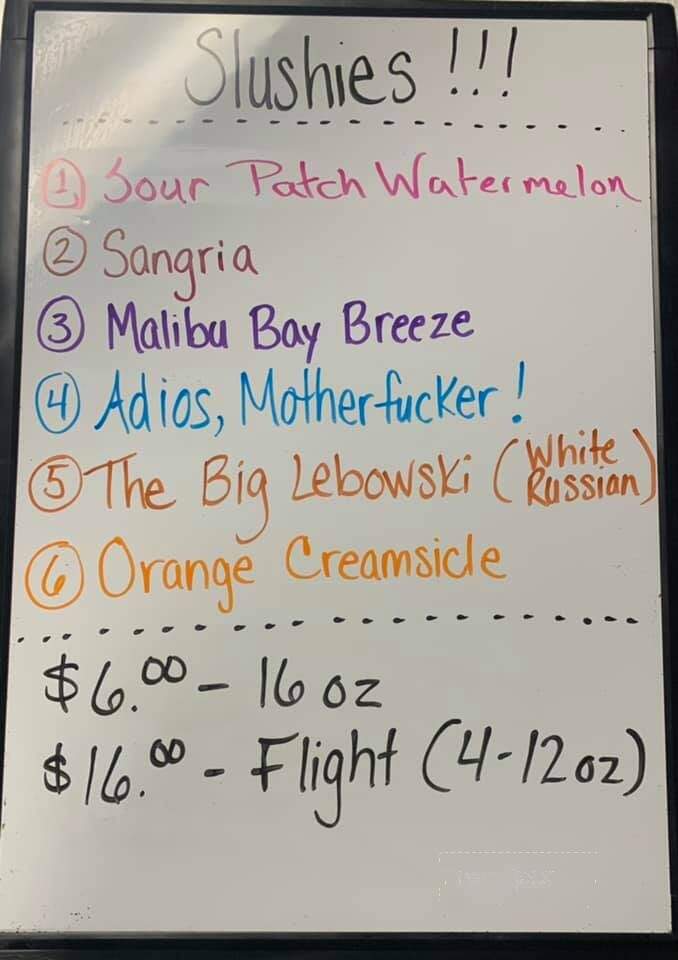 Slushies !!!
1 Sour Patch Watermelon
2 Sangria
3 Malibu Bay Breeze
4 Adios, Motherfucker!
5 The Big Lebowski (White Russian)
6 Orange Creamsicle
$6.00 - 16 oz
$16.00 - Flight (4-12oz)